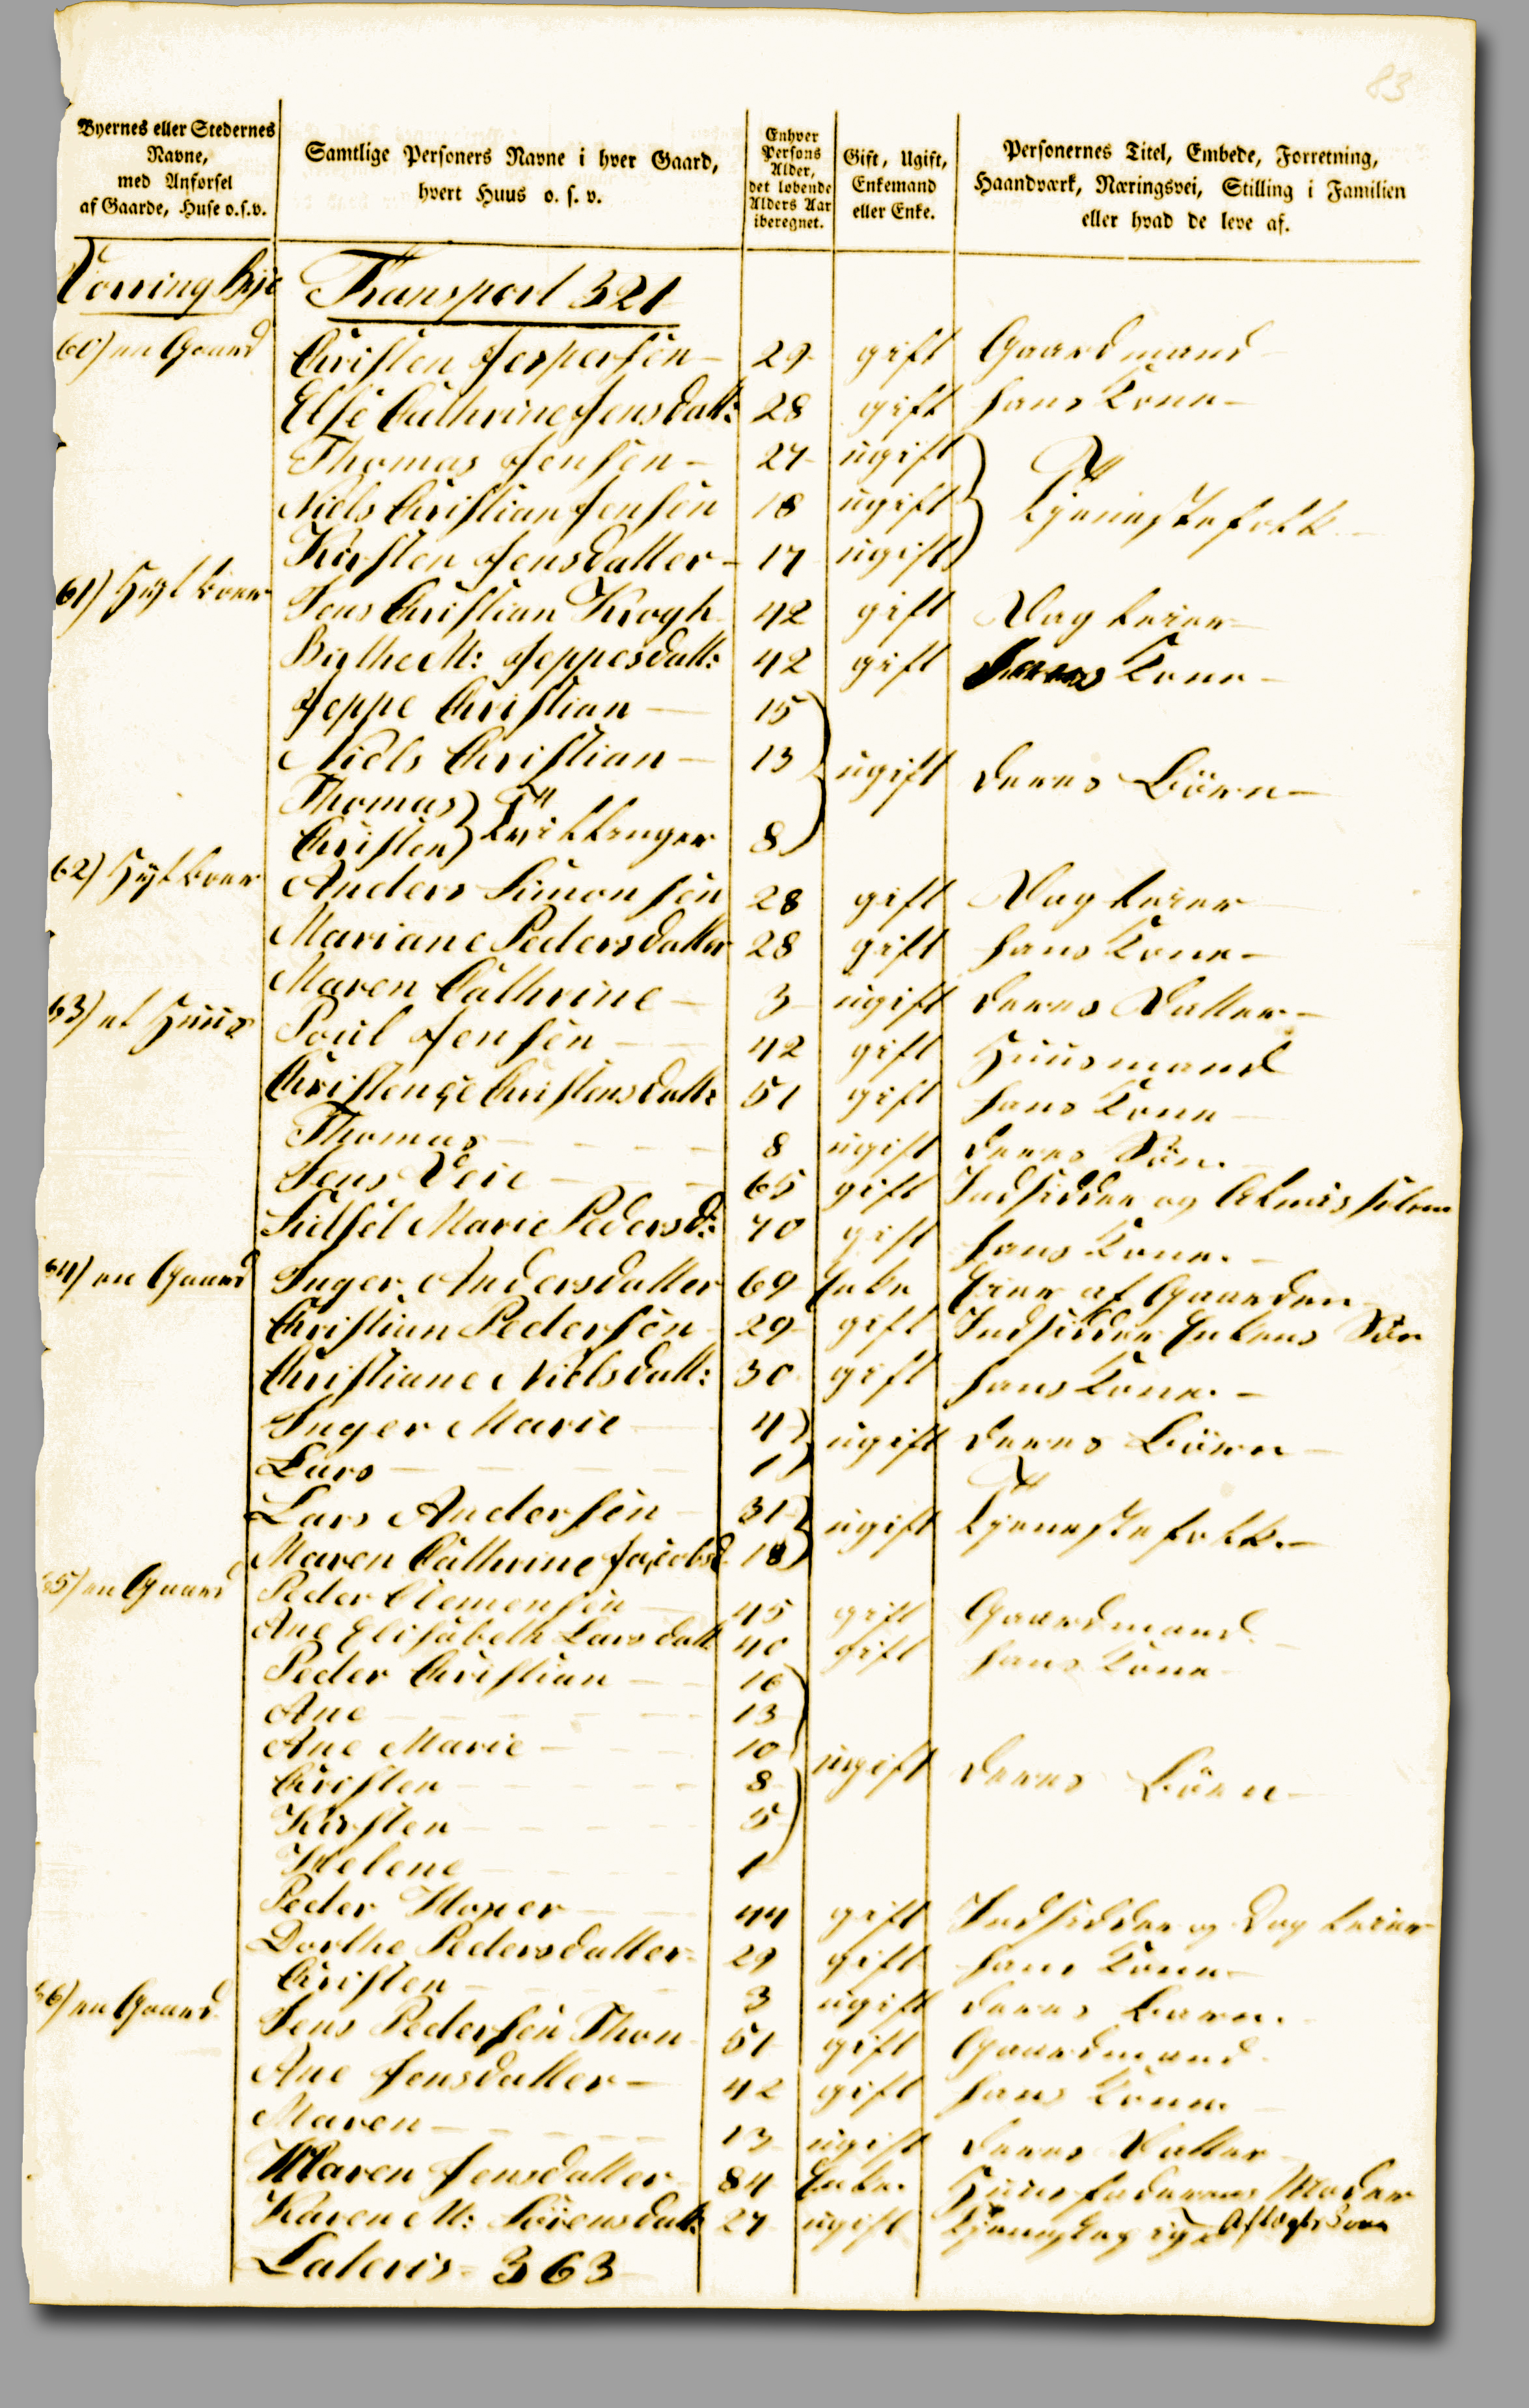 83
Byernes eller Stedernes Navne, med Anførsel af Gaarde, Huse o.s.v.
Samtlige Personers Navne i hver Gaard, hvert Huus o. s. v.
Enhver Persons Alder, det løbende Alders Aar iberegnet.
Gift, Ugift, Enkemand eller Enke.
Personernes Titel, Embede, Forretning, Haandværk, Næringsvei, Stilling i Familien eller hvad de leve af.
Torring Bye Transport 321
60) en Gaard Christen Jespersen 29 gift Gaardmand
Else Cathrine Jensdatt: 28 gift hans Kone
Thomas Jensen 27 ugift
Niels Christian Jensen 18 ugift } Tjenestefolk
Kirsten Jensdatter 17 ugift
61) Jens Christian Krogh 42 gift Dagleier
Birthe M: Jeppesdatt: 42 gift hans Kone
Jeppe Christian 15
Niels Christian 13 ugift deres Börn
Thomas
Christen } Tvillinger 8
62) Anders Simonsen 28 gift Dagleier
Mariane Pedersdatter 28 gift hans Kone
Maren Cathrine 3 ugift deres Datter
63) et Huus Poul Jensen 42 gift Huusmand
Christense Christensdatt: 51 gift hans Kone
Thomas 8 ugift deres Sön
Jens Veie 65 gift Indsidder og Almisselem
Sidsel Marie Pedersd: 70 gift hans Kone
64) en Gaard Inger Andersdatter 69 Enke Eier af Gaarden
Christian Pedersen 29 gift Indsidder Enkens Sön
Christiane Nielsdatt: 30 gift hans Kone
Inger Marie 4
Lars 1 } ugift deres Börn
Lars Andersen 31
Maren Cathrine Jacobsd 18 } ugift Tjenestefolk
65) en Gaard Peder Clemensen 45 gift Gaardmand
Ane Elisabeth Larsdatt 40 gift hans Kone
Peder Christian 16
Ane 13
Ane Marie 10 ugift deres Börn
Christen 8
Kirsten 5
Helene 1
Peder 44 gift Indsidder og Dagleier
Dorthe Pedersdatter 29 gift hans Kone
Christen 3 ugift deres Barn
66) en Gaard Jens Pedersen Thon 51 gift Gaardmand
Ane Jensdatter 42 gift hans Kone
Maren 13 ugift deres Datter
Maren Jensdatter 84 Enke Huusfaderens Moder
Karen M: Sörensdatt: 27 ugift Tjenestepige
Lateris 363